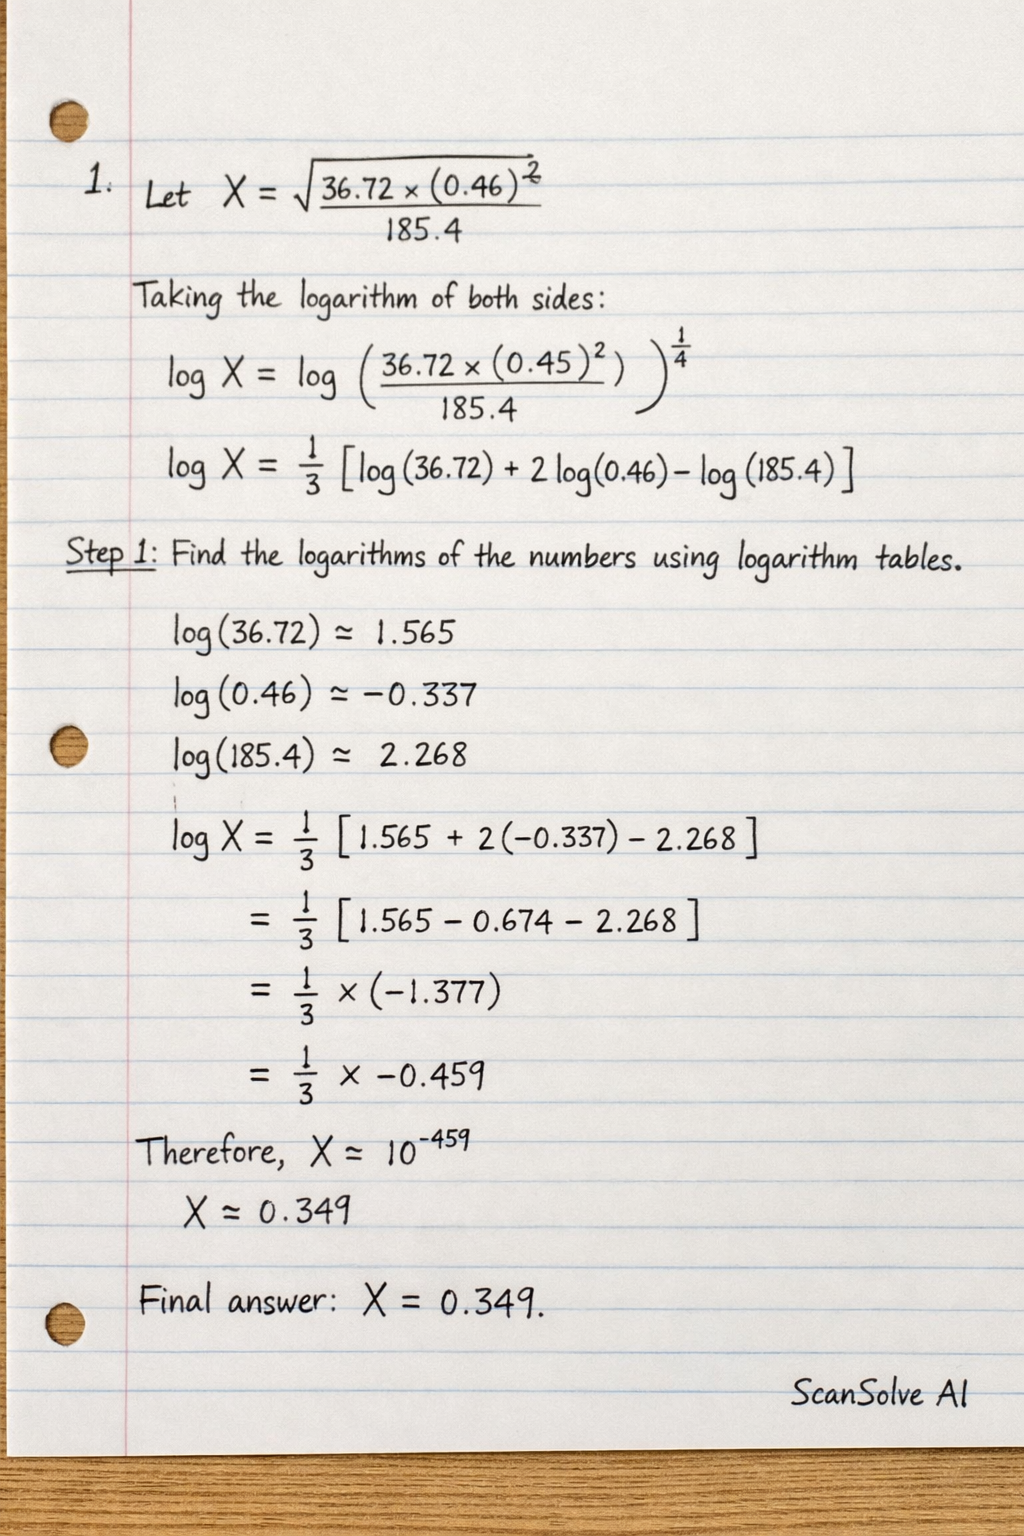 1. Let X = √(36.72 × (0.46)²/185.4)
Taking the logarithm of both sides:
log X = log (36.72 × (0.45)²)/185.4)^(1/4)
log X = 1/3 [log(36.72) + 2 log(0.46) − log(185.4)]
Step 1: Find the logarithms of the numbers using logarithm tables.
log(36.72) ≃ 1.565
log(0.46) ≃ −0.337
log(185.4) ≃ 2.268
log X = 1/3 [1.565 + 2(−0.337) − 2.268]
= 1/3 [1.565 − 0.674 − 2.268]
= 1/3 × (−1.377)
= 1/3 × −0.459
Therefore, X ≃ 10^−459
X ≃ 0.349
Final answer: X = 0.349.
ScanSolve AI